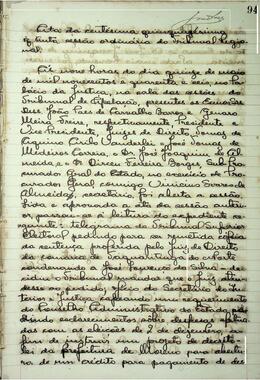 94
Acta da centesima quinquagesima
quinta sessão ordinaria do Tribunal Regio-
nal.
Ás nove horas do dia quinze de maio
de mil novecentos e quarenta e seis, no Pa-
lacio da Justiça, na sala das sessões do
Tribunal de Apelação, presentes os Exmos Srs
Drs. João Paes de Carvalho Barros e Genaro
Meira Freire, respectivamente Presidente,
Vice-Presidente, Juizes de Direito, Tomaz de
Aquino Cirilo Vanderlei, José Tomaz de
Medeiros Correia, e Dr. José Joaquim de Al-
meida, e o Dr. Ferreira Borges, Sub-Pro-
curador Geral do Estado, no exercicio de Pro-
curador Geral, comigo
Almeida, secretario, foi aberta a sessão.
Lida e aprovada a ata da sessão anteri-
or, passou-se á leitura do expediente se-
guinte: telegrama do Tribunal Superior
Eleitoral pedindo para ser remetida cópia
da sentença proferida pelo Juiz de Direito
da comarca de
condenando José Ferreira da Silva; de-
cidiu o Tribunal mandar que o Juiz aten-
desse ao pedido; oficio da Secretaria do In-
terior e Justiça, capeando um requerimento
do Conselho Administrativo do Estado, pe-
dindo esclarecimentos sobre despesas efetua-
das com as eleições de 2 de dezembro, a
fim de instruir um projeto de decreto-
lei da prefeitura de Moreno para abertu-
ra de um credito para pagamento de des-